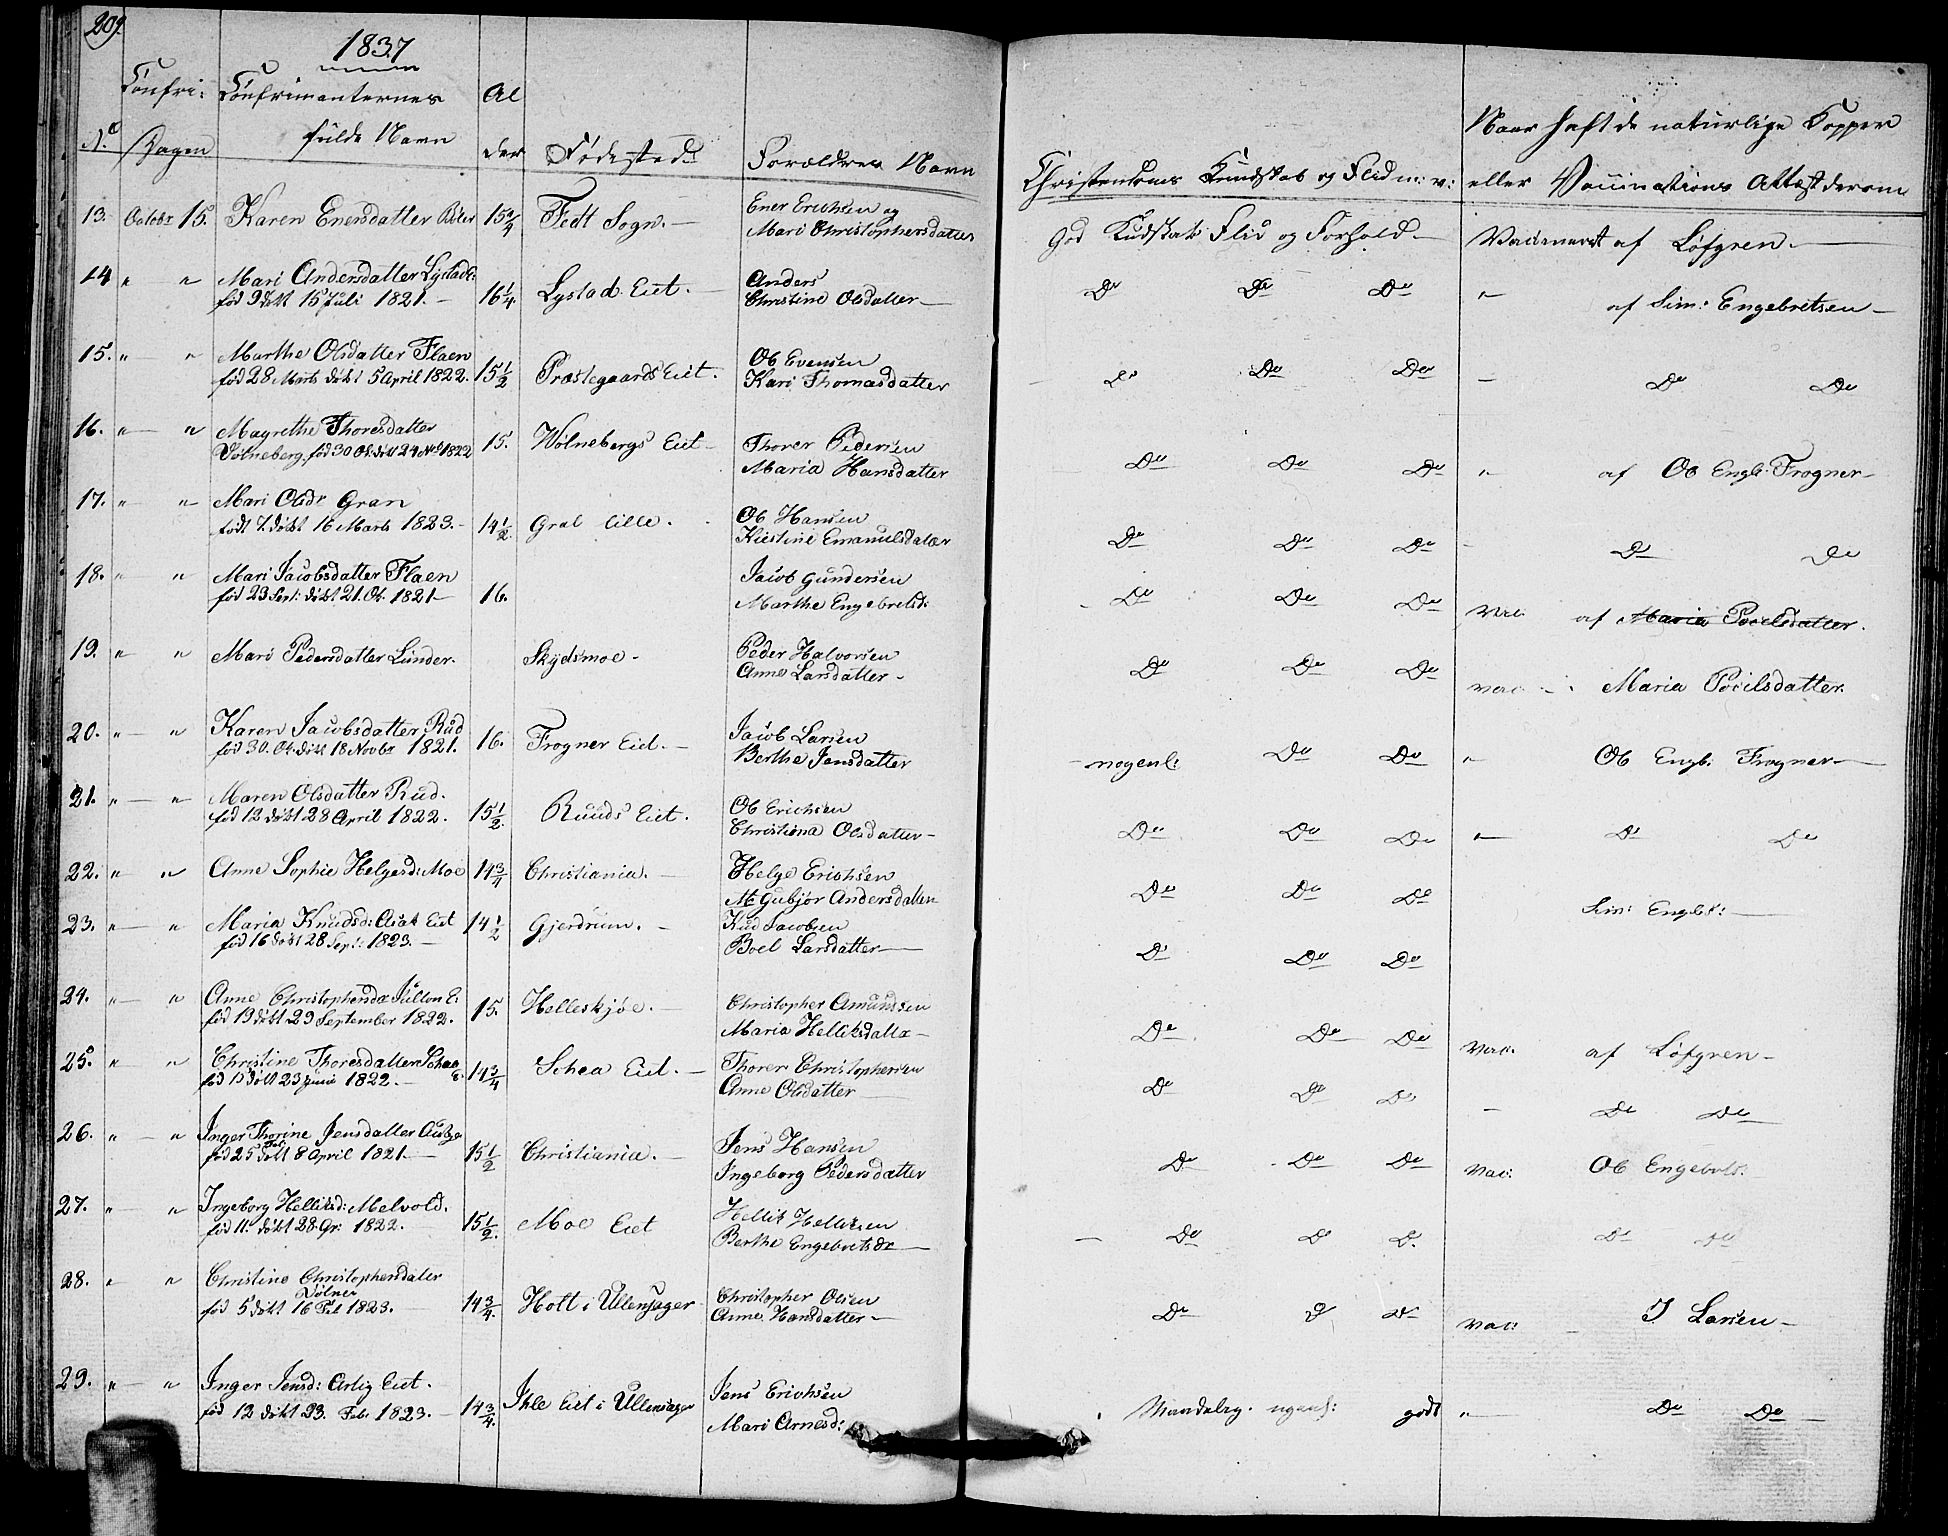 209.
1837
Confir: Confirmanternes Al
No Dagen fulde Navn der Fødested Forældres Navn Christendoms Kundskab og Flid m: v: Naar haft de naturlige Kopper
eller Vaccinations Attest derom
13. Octobr 15. Karen Enersdatter 15 3/4 Fedt Sogn. — Ener Erichsen og God Kudskab Flid og Forhold. — Vaccineret af Löfgren. —
Mari Christophersdatter
14 " " Mari Andersdatter Lystads: 16 1/4 Lystad Eiet. — Anders Do Do Do " af Sim: Engebretsen —
fød 9 døbt 15 Juli 1821. — Christine Olsdatter —
15. " " Marthe Olsdatter Flaen 15 1/2 Præstegaards Eiet. Ole Evensen Do Do Do — Do Do
fød 28 Marts døbt 5 April 1822. Kari Thomasdatter
16. " " Magrethe Thoresdatter 15. Wølnebergs Eiet — Thorer Pedersen Do Do Do " af Ole Engb: Frogner —
Vølneberg. fød 30 Oct: døbt 24 Nov 1822 Maria Hansdatter
17. " " Mari Olsdr Gran 14 1/2. Gral lille. Ole Hansen Do Do Do — Do Do
født 7. døbt 16 Marts 1823. — Kiestine Emanuelsdatter
18. " " Mari Jacobsdatter Flaen 16. Jacob Gundersen Do Do Do Vac: af Maria Poulsdatter.
fød 23 Sept: døbt 21. Oct. 1821 — Marthe Engebretsd:
19. " " Mari Pedersdatter Lunder. Skydsmoe — Peder Halvorsen Do Do Do Vac: — Maria Poulsdatter
Anne Larsdatter —
20. " " Karen Jacobsdatter Rud 16. Frogner Eid. — Jacob Larsen nogenl: Do Do " Ole Engb: Frogner —
fød 30. Oct. døbt 18 Novbr 1821. Berthe Jensdatter
21. " " Maren Olsdatter Rud. 15 1/2. Ruuds Eiet. Ole Erichsen Do Do Do " Do Do
fød 12 døbt 28 April 1822. Christiana Olsdatter —
22. " " Anne Sophie Helgesd: Moe 14 3/4 Christiania. — Helge Erichsen Do Do Do Sim: Engbt: —
Gubjør Andersdatter
23. " " Maria Knudsd: Asak Eiet 14 1/2 Gjerdrum. — Knud Jacobsen Do Do Do
fød 16 døbt 28 Sept: 1823. — Boel Larsdatter —
24. " " Anne Christophersda Julton E: 15. Helleskjøe. — Christopher Amundsen Do Do Do Vac: af Löfgren —
fød 19 døbt 29 September 1822. Maria Helliksdatter —
25. " " Christine Thoresdatter Schea E: 14 3/4 Schea Eiet. — Thorer Christophersen Do Do Do — Do Do
døbt 23 Juni 1822. — Anne Olsdatter —
26. " " Inger Thorine Jensdatter 15 1/2 Christiania. — Jens Hansen Do Do Do Vac: Ole Engebrets:
fød 25 Feb: døbt 8 April 1821 — Ingeborg Pedersdatter
27. " " Ingeborg Helliksd: Melvold. 15 1/2. Moe Eiet Hellik Helliksen Do Do Do Do Do
fød 11. døbt 28 1822. — Berthe Engebretsdr —
28. " " Christine Christophersdatter 14 3/4. Holt i Ullensager Christopher Olsen Do Do Do Vac: — J Larsen —
Dølner
fød 5 døbt 16 Feb 1823. — Anne Hansdatter —
29. " " Inger Jensd: Arlig Eiet. 14 3/4. Ihle Eiet i Ullensager Jens Erichsen Maadelig. godt " Do Do —
fød 12 døbt 23. Feb. 1823. — Mari Arnesd: